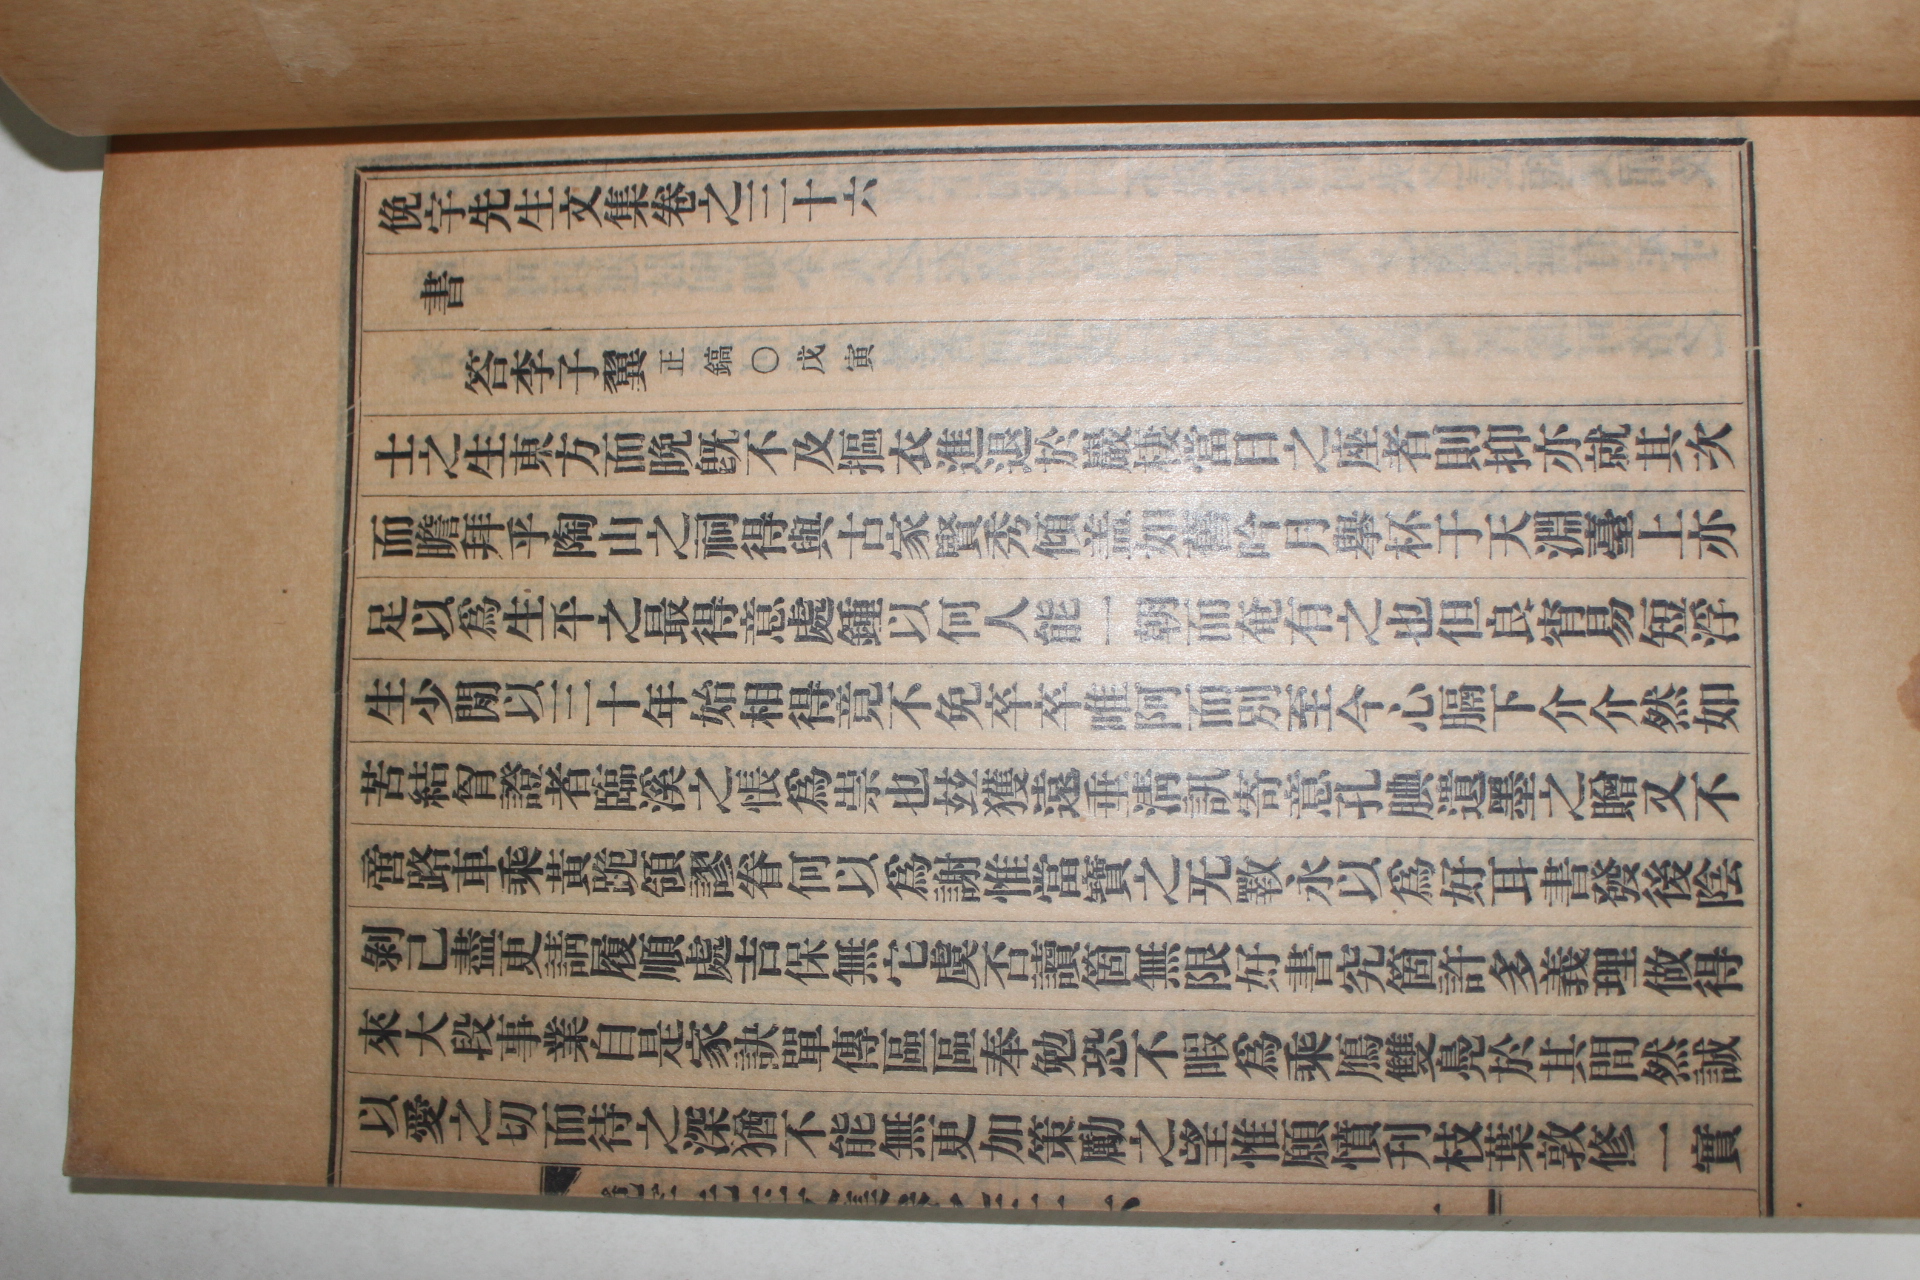 俛宇先生文集卷之三十六
書
答李子翼正鎬〇戊寅
士之生東方而晩旣不及摳衣進退於巖棲當日之座者則抑亦就其次
而瞻拜乎陶山之祠得與古家賢秀傾盖如舊吟月擧杯于天淵臺上亦
足以爲生平之最得意處鍾以何人能一朝而奄有之也但良宵易短浮
生少閒以三十年始相得竟不免卒卒唯阿而別至今心膈下介介然如
苦結胷證者臨溪之悵爲祟也玆獲遠垂淸訊寄意孔腆遺墨之贈又不
啻路車乘黃跪領謬眷何以爲謝惟當寶之无斁永以爲好耳書發後陰
剝己盡更請履順處吉保無它虞否讀箇無限好書究箇許多義理做得
來大段事業自是家訣單傳區區奉勉恐不暇爲乘鴈雙鳧於其間然誠
以愛之切而待之深猶不能無更加策勵之望惟願憤刋枝葉敦修一實
俛宇先生文集卷之三十六
一